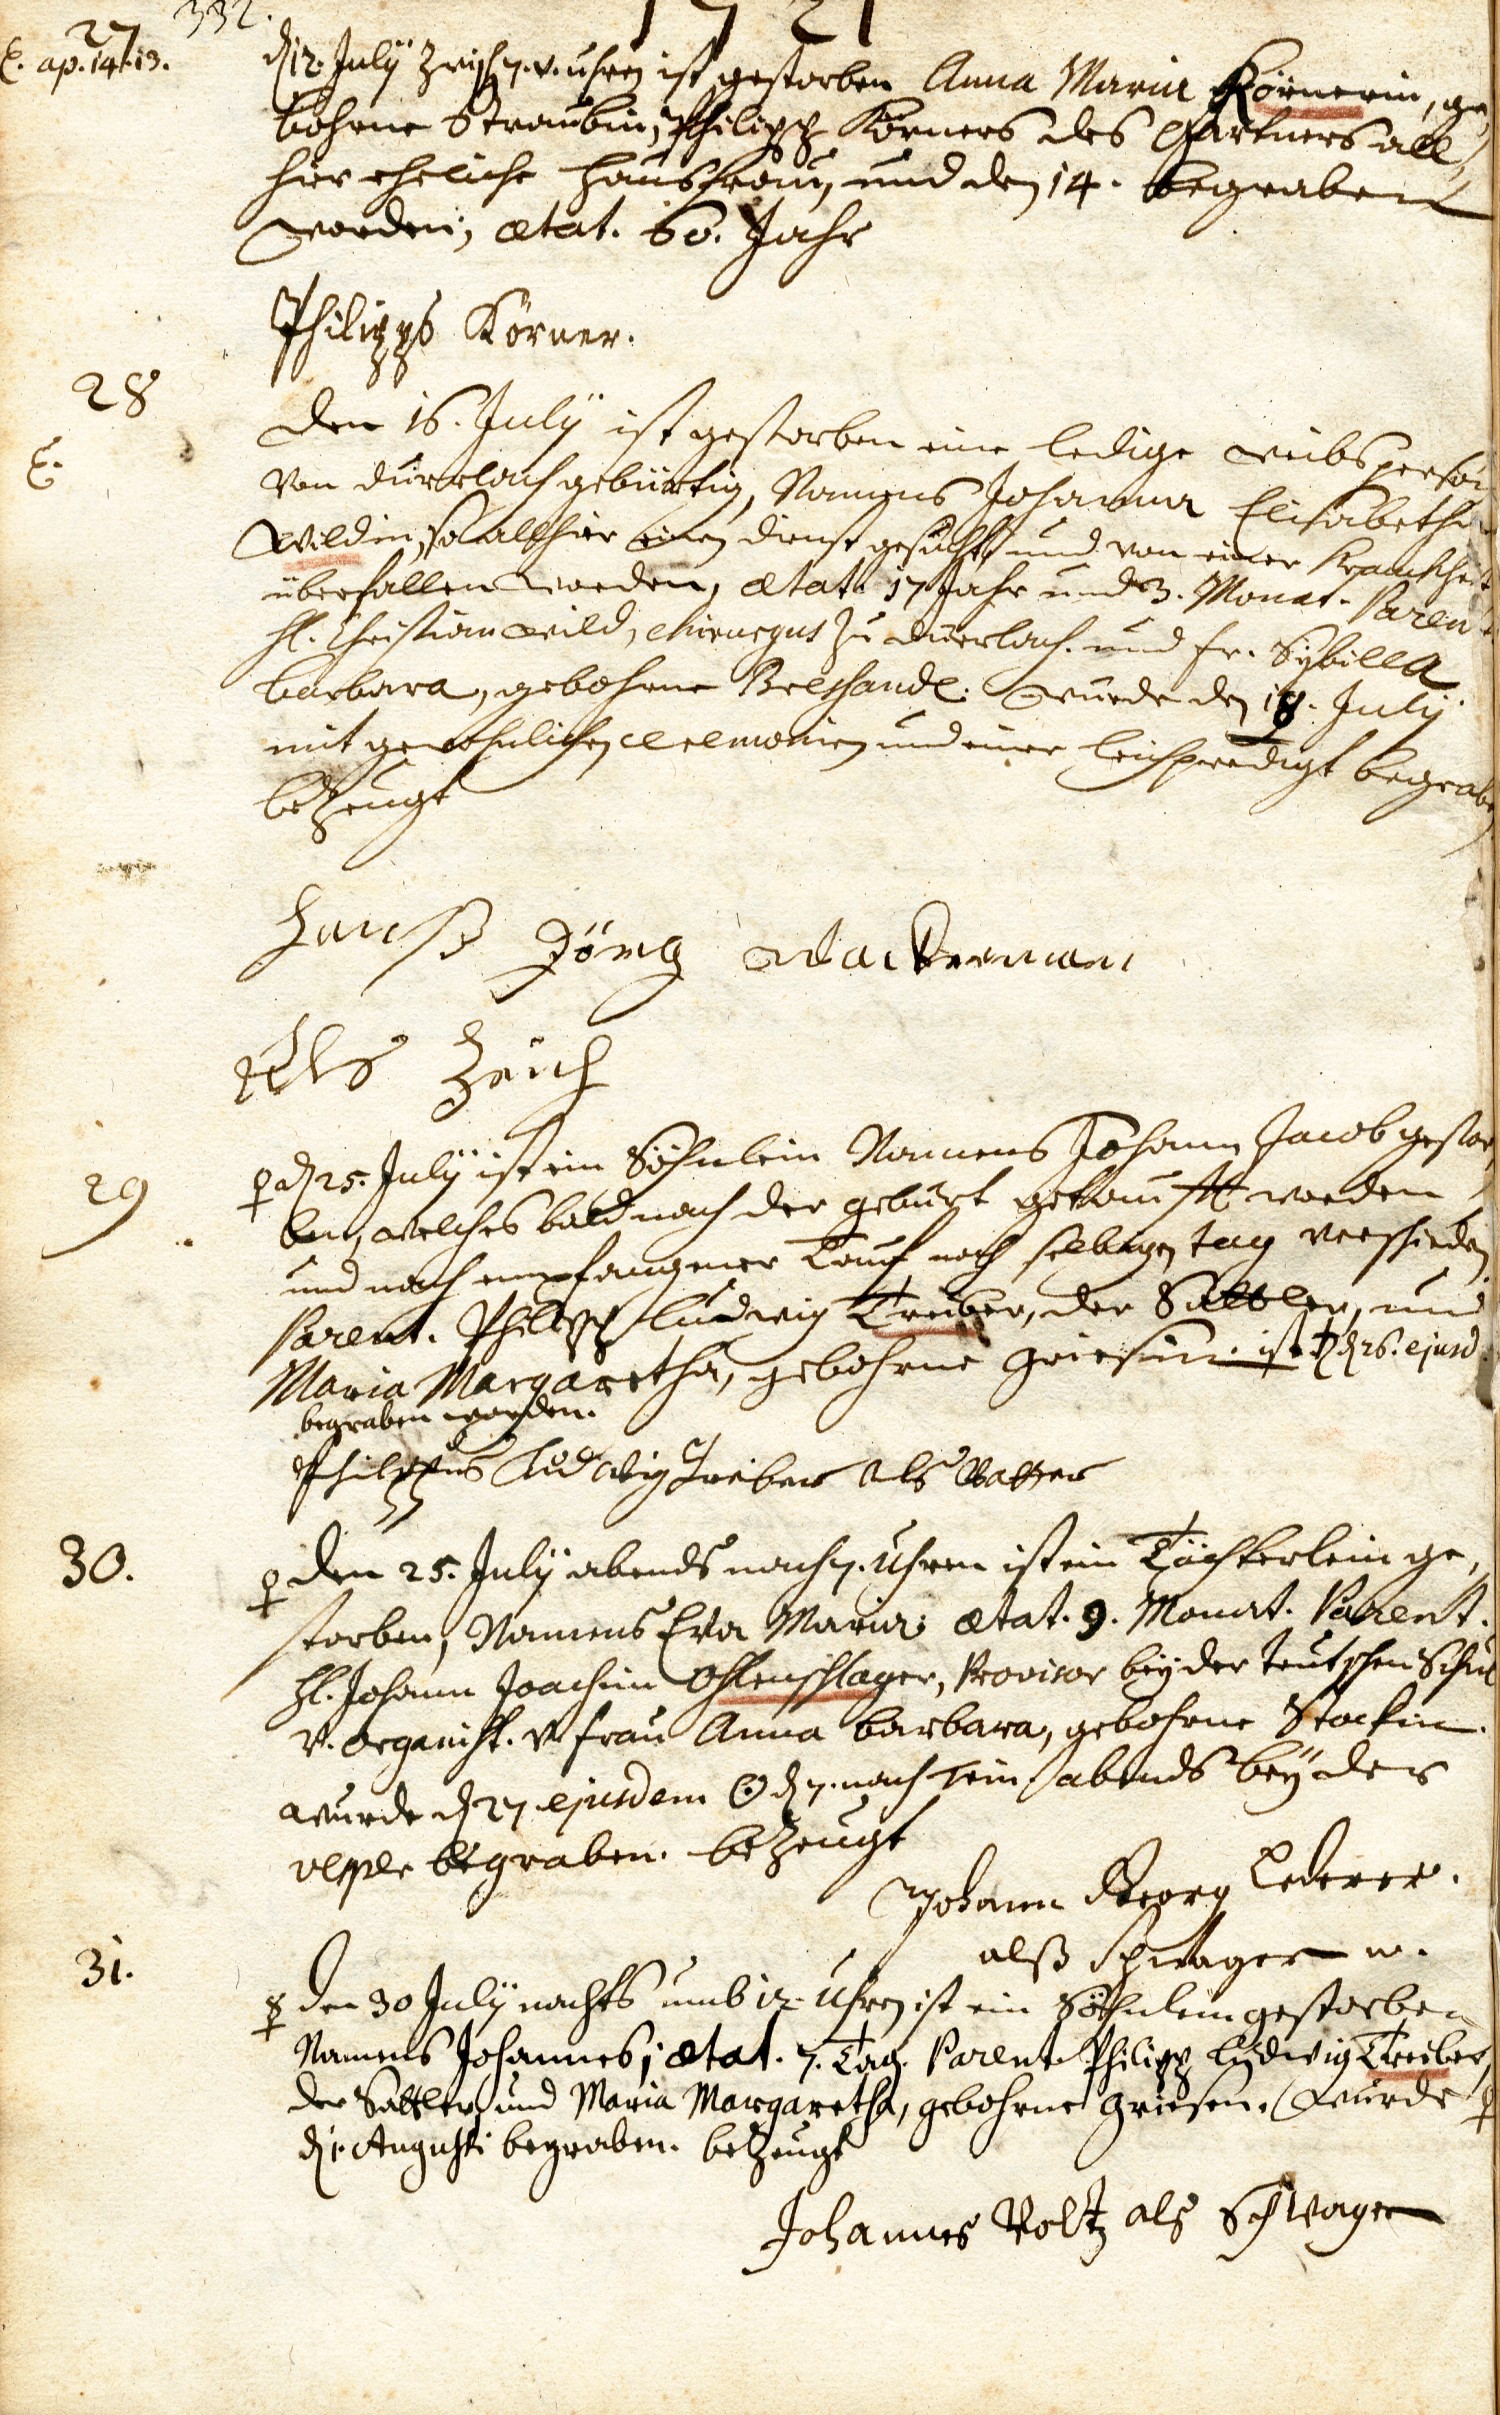 332.
1721
27
E. ap. 14. 13.
d 12. July zwisch 7. v. uhren ist gestorben Anna Maria Körnerin, ge,
bohrne Straubin, Philipp Körners des Gärtners all,
hier eheliche Haußfrau, und den 14. begraben
worden; ætat. 60. Jahr
Philipps Körner.
28
E.
Den 16. July ist gestorben eine ledige weibsperson
von Durrlach gebürtig, Namens Johanna Elisabetha
Wildin, so allhier einen dienst gesucht und von einer Kranckheit
überfallen worden, ætat. 17 Jahr und 3. Monat. Parent
H. Christian Wild, Chirurgus zu Durrlach. und fr. Sybilla
barbara, gebohrne wurde den 18. July
mit gewohnlichen Ceremonien und einer Leichpredigt begraben
bezeugt
Hanß Jörg Wackerman
Als Zeich
29
d 25. July ist ein Söhnlein Namens Johann Jacob gestor,
ben, welches bald nach der geburt getaufft worden
und nach empfangener Tauf noch selbigen tag verschieden.
Parent. Philipp Ludwig Treiber, der Sattler, und
Maria Margaretha, gebohrne Griesin. ist d 26. ejusd
begraben worden.
Philippus Ludwig Treiber als Vatter
30.
den 25. July abends nach 7. Uhren ist ein Töchterlein ge,
storben, Namens Eva Maria ætat. 9. Monat. Parent.
H. Johann Joachim Ohlenschlager, Provisor bey der teutschen Schul
v. Organist. v. frau Anna barbara, gebohrne Stockin.
wurde d 27. ejusdem abends bey der
vesper begraben. bezeugt
Johann Georg Lederer.
alß Schwager
31.
den 30 July nachts umb 12. Uhren ist ein Söhnlein gestorben
Namens Johannes, ætat. 7. Tag. Parent. Philipp Ludwig Treiber,
der Sattler, und Maria Margaretha, gebohrne Griesin. Wurde
d 1. Augusti begraben. bezeugt
Johannes Voltz als Schwager